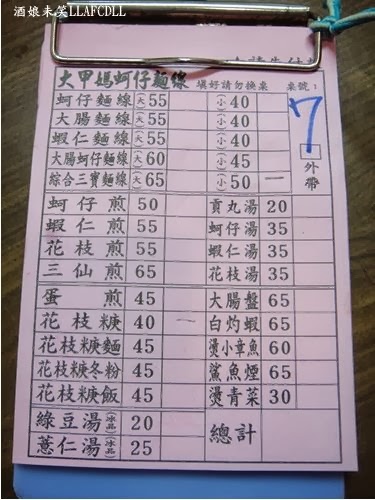 酒娘未笑LLAFCDLL
大甲媽蚵仔麵線 填好請勿換桌 桌號：
7
外帶
蚵仔麵線(大) 55 (小) 40
大腸麵線(大) 55 (小) 40
蝦仁麵線(大) 55 (小) 40
大腸蚵仔麵線(大) 60 (小) 45
綜合三寶麵線(大) 65 (小) 50 一
蚵仔煎 50 貢丸湯 20
蝦仁煎 55 蚵仔湯 35
花枝煎 55 蝦仁湯 35
三仙煎 65 花枝湯 35
蛋煎 45 大腸盤 65
花枝焿 40 一 白灼蝦 65
花枝焿麵 45 燙小章魚 60
花枝焿冬粉 45 鯊魚煙 65
花枝焿飯 45 燙青菜 30
綠豆湯(冰品) 20 總計
薏仁湯(冰品) 25